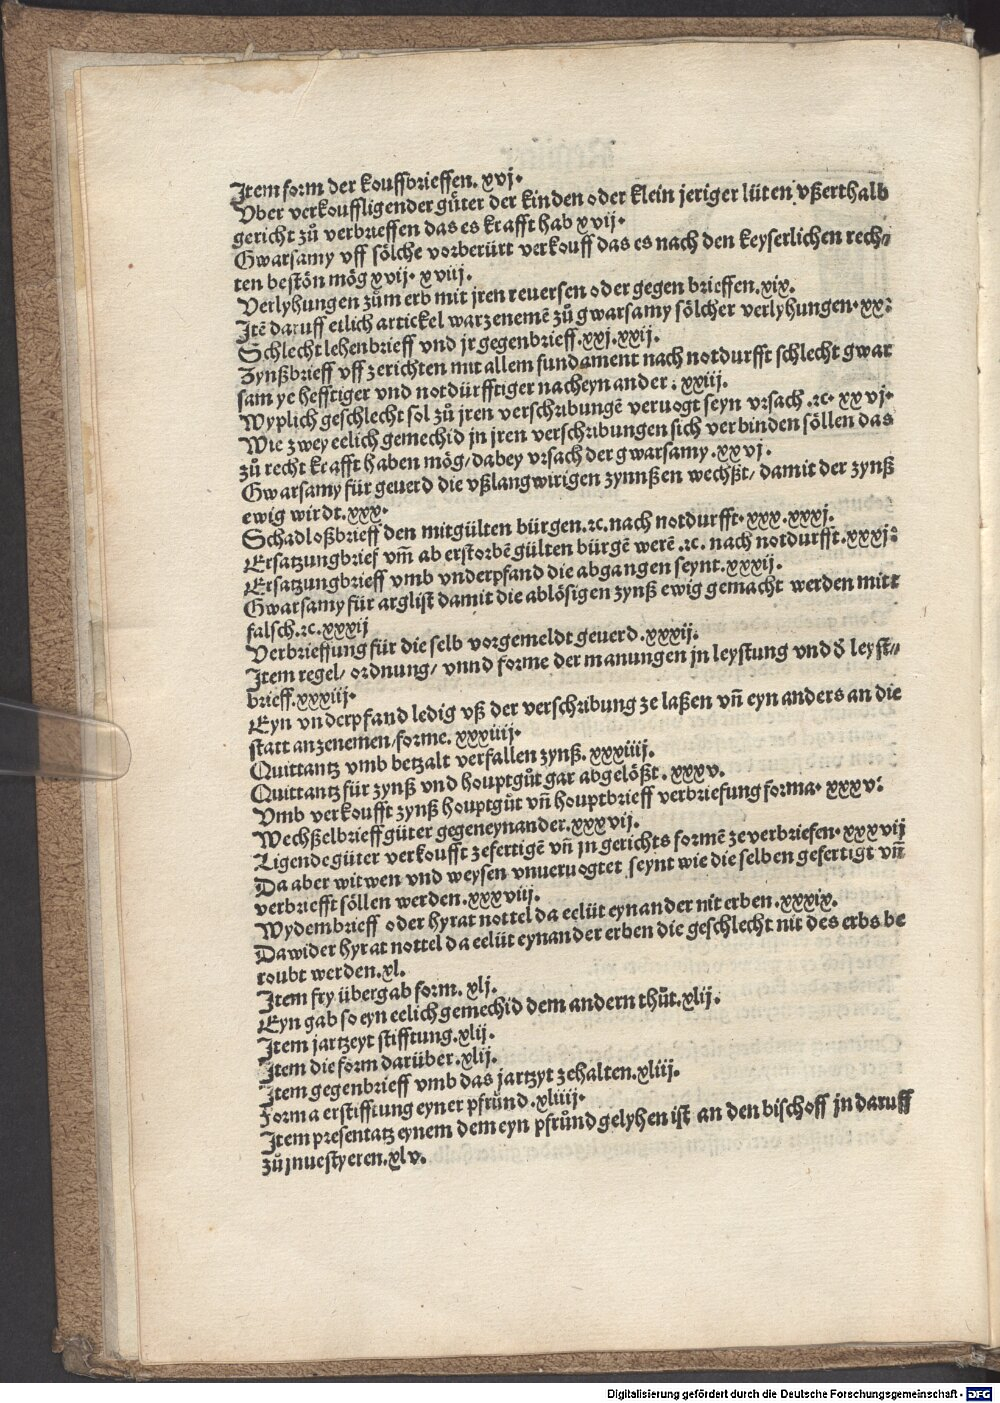 Item form der kouffbrieffen. xvj.
Vber verkouffligender gůter der kinden oder klein jeriger lüten vßerthalb
gericht zů verbrieffen das es krafft hab xvij.
Gwarsamy vff sölche vorberürt verkouff das es nach den keyserlichen rech⸗
ten bestön mög xvij. xviij.
Verlyhungen zům erb mit jren reuersen oder gegen brieffen. xix.
Itē daruff etlich artickel warzenemē zů gwarsamy sölcher verlyhungen. xx:
Schlecht lehenbrieff vnd jr gegenbrieff. xxj. xxij.
Zynßbrieff vff zerichten mit allem fundament nach notdurfft schlecht gwar
sam ye hefftiger vnd notdürfftiger nacheynander: xxiij.
Wyplich geschlecht sol zů jren verschribungē veruogt seyn vrsach ⁊c. xxvj.
Wie zwey eelich gemechid in jren verschribungen sich verbinden söllen das
zů recht krafft haben mög/ dabey vrsach der gwarsamy. xxvj.
Gwarsamy für geuerd die vßlangwirigen zynnßen wechßt/ damit der zynß
ewig wirdt. xxx.
Schadloßbrieff den mitgülten bürgen. ⁊c. nach notdurfft. xxx. xxxj.
Ersatzungbrief vm̄ ab erstorbē gülten bürgē werē. ⁊c. nach notdurfft. xxxj:
Ersatzungbrieff vmb vnderpfand die abgangen seynt. xxxij.
Gwarsamy für arglist damit die ablösigen zynß ewig gemacht werden mitt
falsch. ⁊c. xxxij
Verbrieffung für die selb vorgemeldt geuerd. xxxij.
Item regel/ ordnung/ vnnd forme der manungen in leystung vnd ď leyst⸗
brieff. xxxiij.
Eyn vnderpfand ledig vß der verschribung ze laßen vn̄ eyn anders an die
statt anzenemen/ forme. xxxiiij.
Quittantz vmb betzalt verfallen zynß. xxxiiij.
Quittantz für zynß vnd houptgůt gar abgelößt. xxxv.
Vmb verkoufft zynß houptgůt vn̄ houptbrieff verbriefung forma. xxxv:
Wechßelbrieff güter gegeneynander. xxxvij.
Ligende güter verkoufft zefertigē vn̄ in gerichts formē ze verbriefen. xxxvij
Da aber witwen vnd weysen vnueruogtet seynt wie die selben gefertigt vn̄
verbriefft söllen werden. xxxviij.
Wydembrieff oder hyrat nottel da eelüt eynander nit erben. xxxix.
Dawider hyrat nottel da eelüt eynander erben die geschlecht nit des erbs be
roubt werden. xl.
Item fry übergab form. xlj.
Eyn gab so eyn eelich gemechid dem andern thůt. xlij.
Item jartzeyt stifftung. xlij.
Item die form darüber. xlij.
Item gegenbrieff vmb das jartzyt zehalten. xliij.
Forma erstifftung eyner pfrůnd. xliiij.
Item presentatz eynem dem eyn pfrůnd gelyhen ist an den bischoff in daruff
zů inuestyeren. xlv.
Digitalisierung gefördert durch die Deutsche Forschungsgemeinschaft - DFG